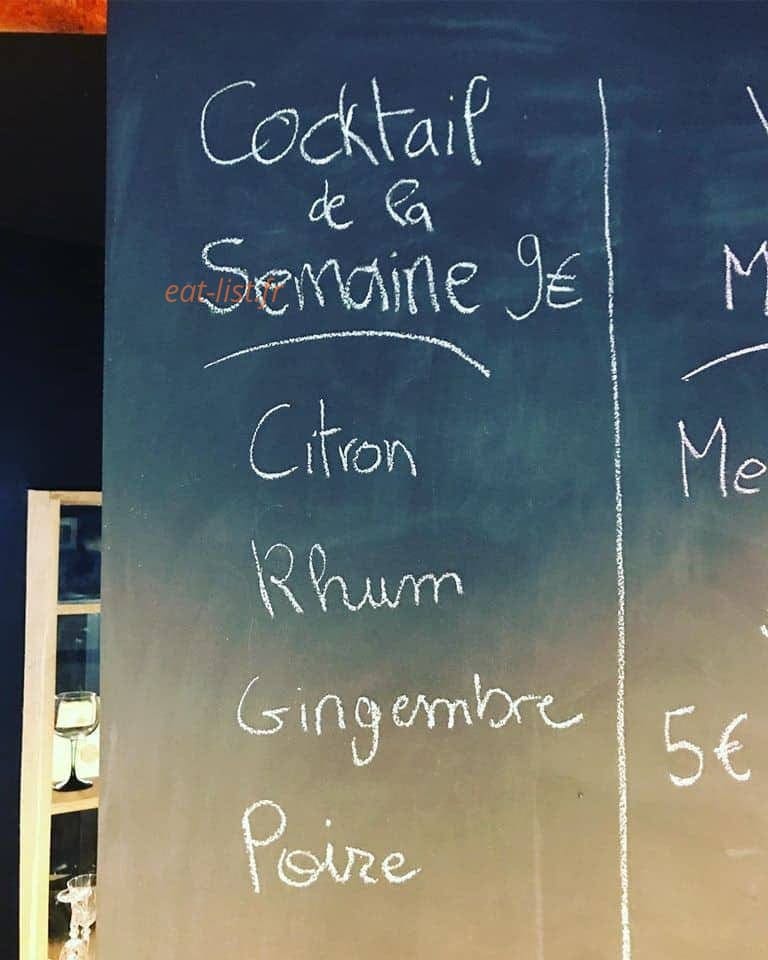 Cocktail
de la
Semaine 9€
eat-list.fr
Citron
Rhum
Gingembre
Poire
5€